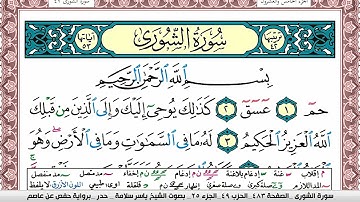 سُورَةُ الشُّورَىٰ
بِسْمِ اللَّهِ الرَّحْمَٰنِ الرَّحِيمِ
حمٓ ١ عٓسٓقٓ ٢ كَذَٰلِكَ يُوحِىٓ إِلَيْكَ وَإِلَى ٱلَّذِينَ مِن قَبْلِكَ
ٱللَّهُ ٱلْعَزِيزُ ٱلْحَكِيمُ ٣ لَهُۥ مَا فِى ٱلسَّمَٰوَٰتِ وَمَا فِى ٱلْأَرْضِ وَهُوَ
سورة الشورى - صفحة ٤٨٣ - الحزب ٤٩ - الجزء ٢٥ بصوت الشيخ ياسر سلامة - حدر - برواية حفص عن عاصم